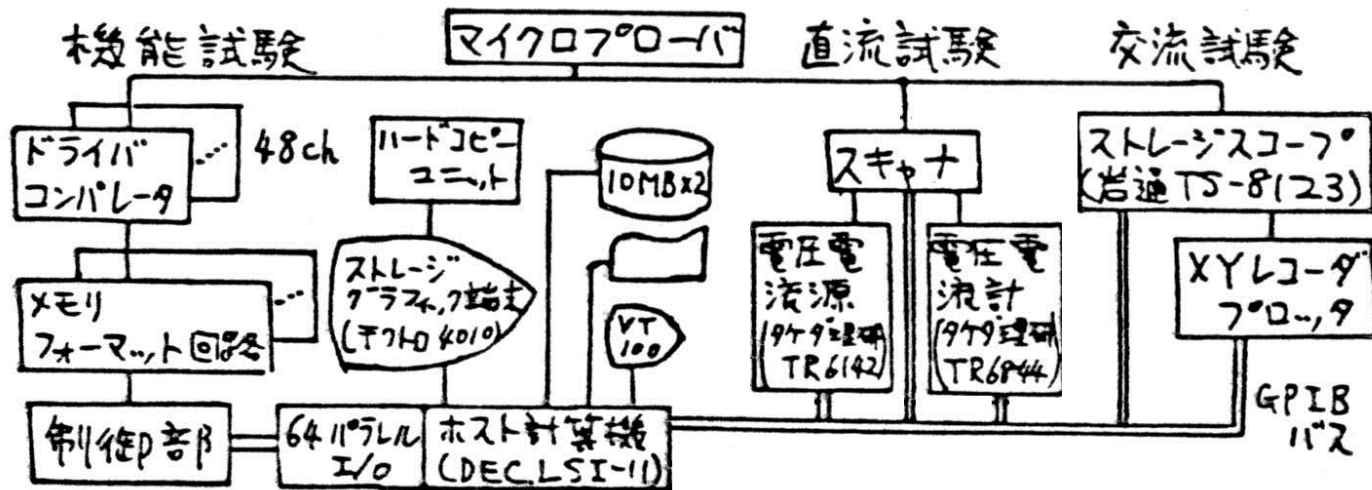 機能試験
マイクロプローバ
直流試験
交流試験
ドライバ
コンパレータ
48ch
ハードコピー
ユニット
10MBx2
スキャナ
ストレージスコープ
(岩通TS-8123)
メモリ
フォーマット回路
ストレージ
グラフィック端末
(テクトロ4010)
VT
100
電圧電
流源
(タケダ理研
TR6142)
電圧電
流計
(タケダ理研
TR6844)
XYレコーダ
プロッタ
制御部
64パラレル
I/O
ホスト計算機
(DEC.LSI-11)
GPIB
バス